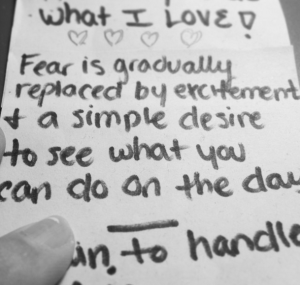 what I Love!
Fear is gradually
replaced by excitement
+ a simple desire
to see what you
can do on the day
to handle